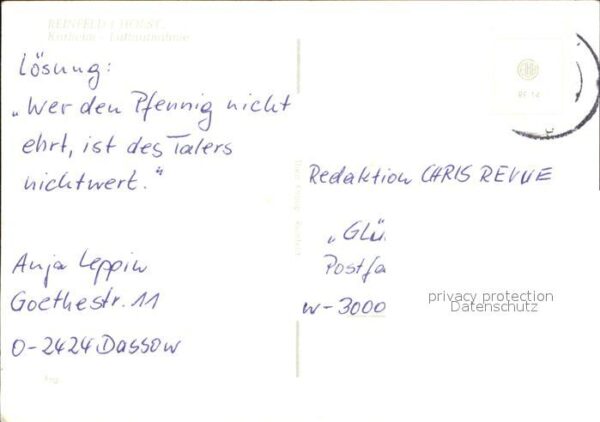 REINFELD i. HOLST.
Kurheim - Luftaufnahme
Lösung:
„Wer den Pfennig nicht
ehrt, ist des Talers
nichtwert."
Anja Leppin
Goethestr. 11
O-2424 Dassow
Redaktion CHRIS REVUE
„GLÜ
Postfa
W-3000
privacy protection
Datenschutz